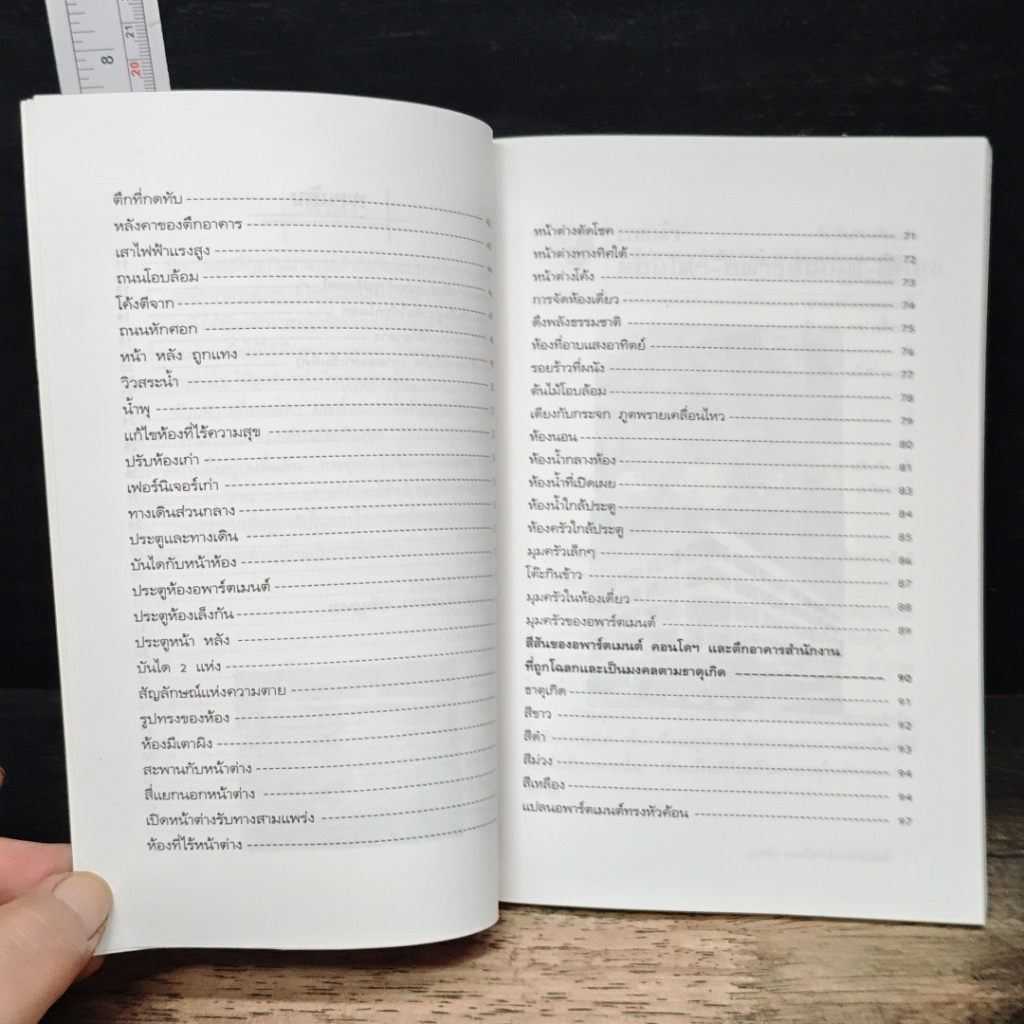 8
21
20
ตึกที่กดทับ
หลังคาของตึกอาคาร
เสาไฟฟ้าแรงสูง
ถนนโอบล้อม
โค้งตีจาก
ถนนหักศอก
หน้า หลัง ถูกแทง
วิวสระน้ำ
น้ำพุ
แก้ไขห้องที่ไร้ความสุข
ปรับห้องเก่า
เฟอร์นิเจอร์เก่า
ทางเดินส่วนกลาง
ประตูและทางเดิน
บันไดกับหน้าห้อง
ประตูห้องอพาร์ตเมนต์
ประตูห้องเล็งกัน
ประตูหน้า หลัง
บันได 2 แห่ง
สัญลักษณ์แห่งความตาย
รูปทรงของห้อง
ห้องมีเตาผิง
สะพานกับหน้าต่าง
สี่แยกนอกหน้าต่าง
เปิดหน้าต่างรับทางสามแพร่ง
ห้องที่ไร้หน้าต่าง
หน้าต่างตัดโชค 71
หน้าต่างทางทิศใต้ 72
หน้าต่างโค้ง 73
การจัดห้องเดี่ยว 74
ดึงพลังธรรมชาติ 75
ห้องที่อาบแสงอาทิตย์ 76
รอยร้าวที่ผนัง 77
ต้นไม้โอบล้อม 78
เตียงกับกระจก ภูตพรายเคลื่อนไหว 79
ห้องนอน 80
ห้องน้ำกลางห้อง 81
ห้องน้ำที่เปิดเผย 83
ห้องน้ำใกล้ประตู 84
ห้องครัวใกล้ประตู 85
มุมครัวเล็กๆ 86
โต๊ะกินข้าว 87
มุมครัวในห้องเดี่ยว 88
มุมครัวของอพาร์ตเมนต์ 89
สีสันของอพาร์ตเมนต์ คอนโดฯ และตึกอาคารสำนักงาน
ที่ถูกโฉลกและเป็นมงคลตามธาตุเกิด 90
ธาตุเกิด 91
สีขาว 92
สีดำ 93
สีม่วง 94
สีเหลือง 94
แปลนอพาร์ตเมนต์ทรงหัวค้อน 97